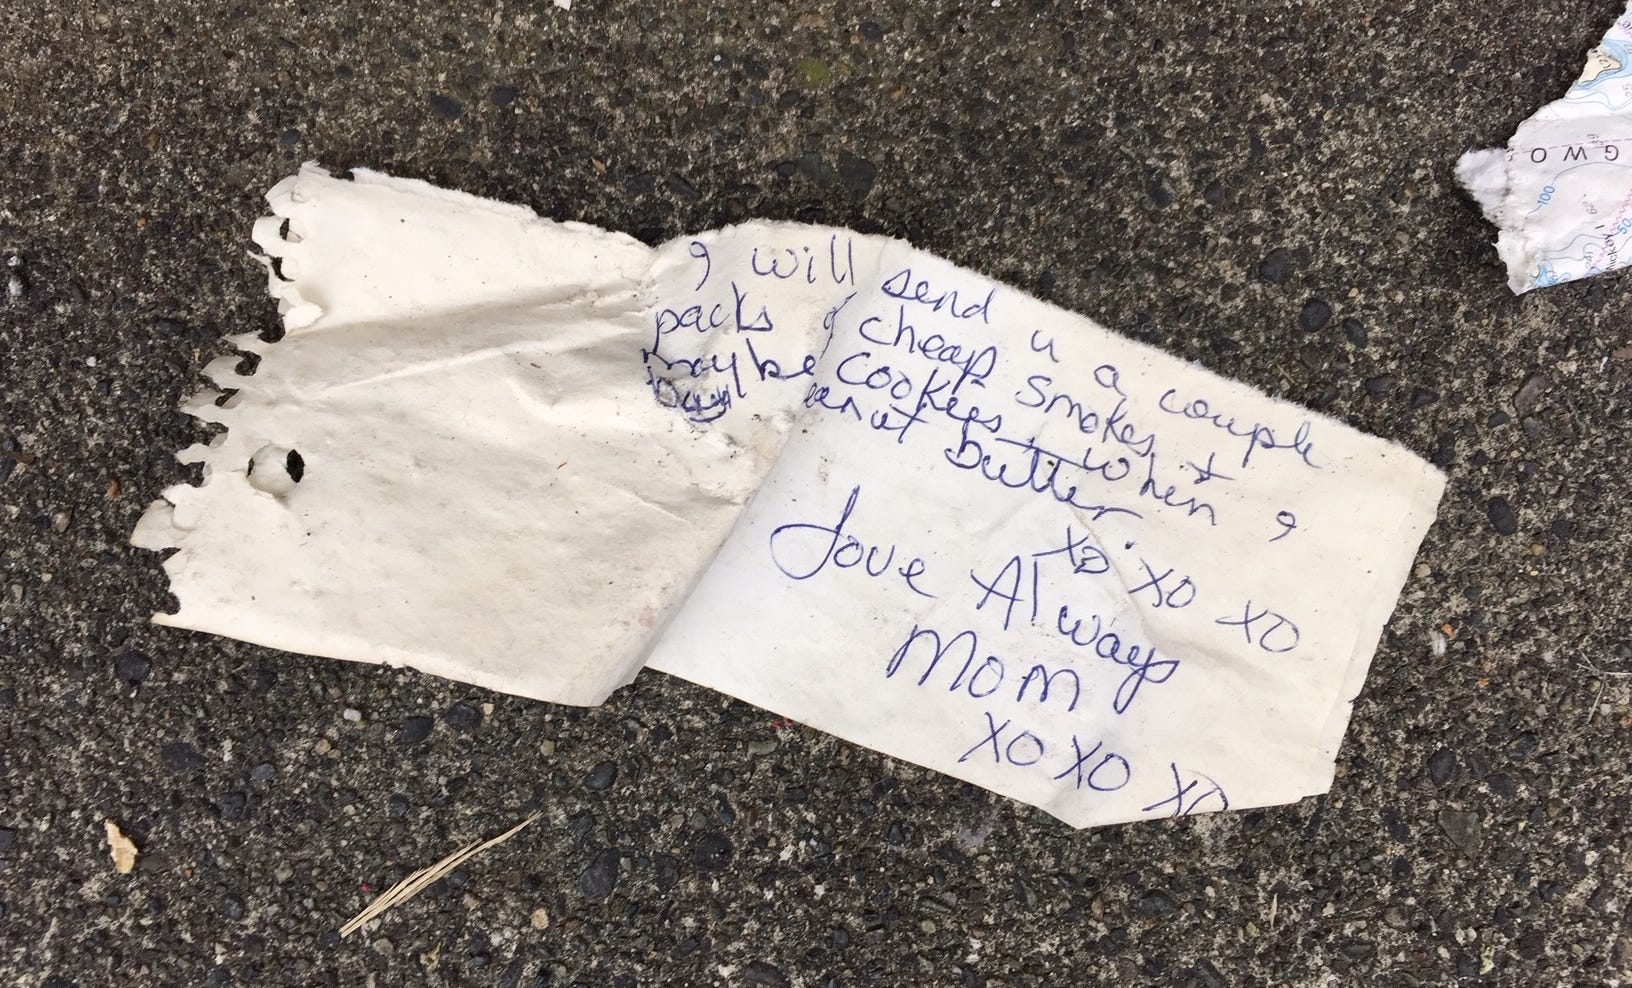 I will send u a couple
packs of cheap smokes +
maybe cookies when I
peanut butter
XO XO XO
Love Always
Mom
XO XO XO
G W O
100
50